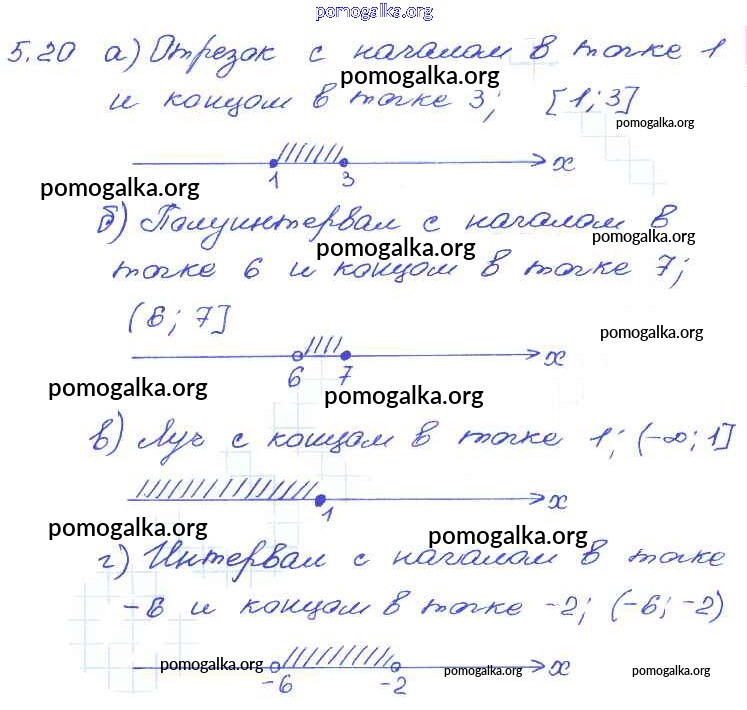 pomogalka.org
5.20 а) Отрезок с началом в точке 1
pomogalka.org
и концом в точке 3; [1; 3]
pomogalka.org
x
1 3
pomogalka.org
б) Полуинтервал с началом в
pomogalka.org
pomogalka.org
точке 6 и концом в точке 7;
(6; 7]
pomogalka.org
x
6 7
pomogalka.org
pomogalka.org
в) Луч с концом в точке 1; (-∞; 1]
x
1
pomogalka.org
pomogalka.org
г) Интервал с началом в точке
-6 и концом в точке -2; (-6; -2)
pomogalka.org
x
pomogalka.org
pomogalka.org
-6 -2